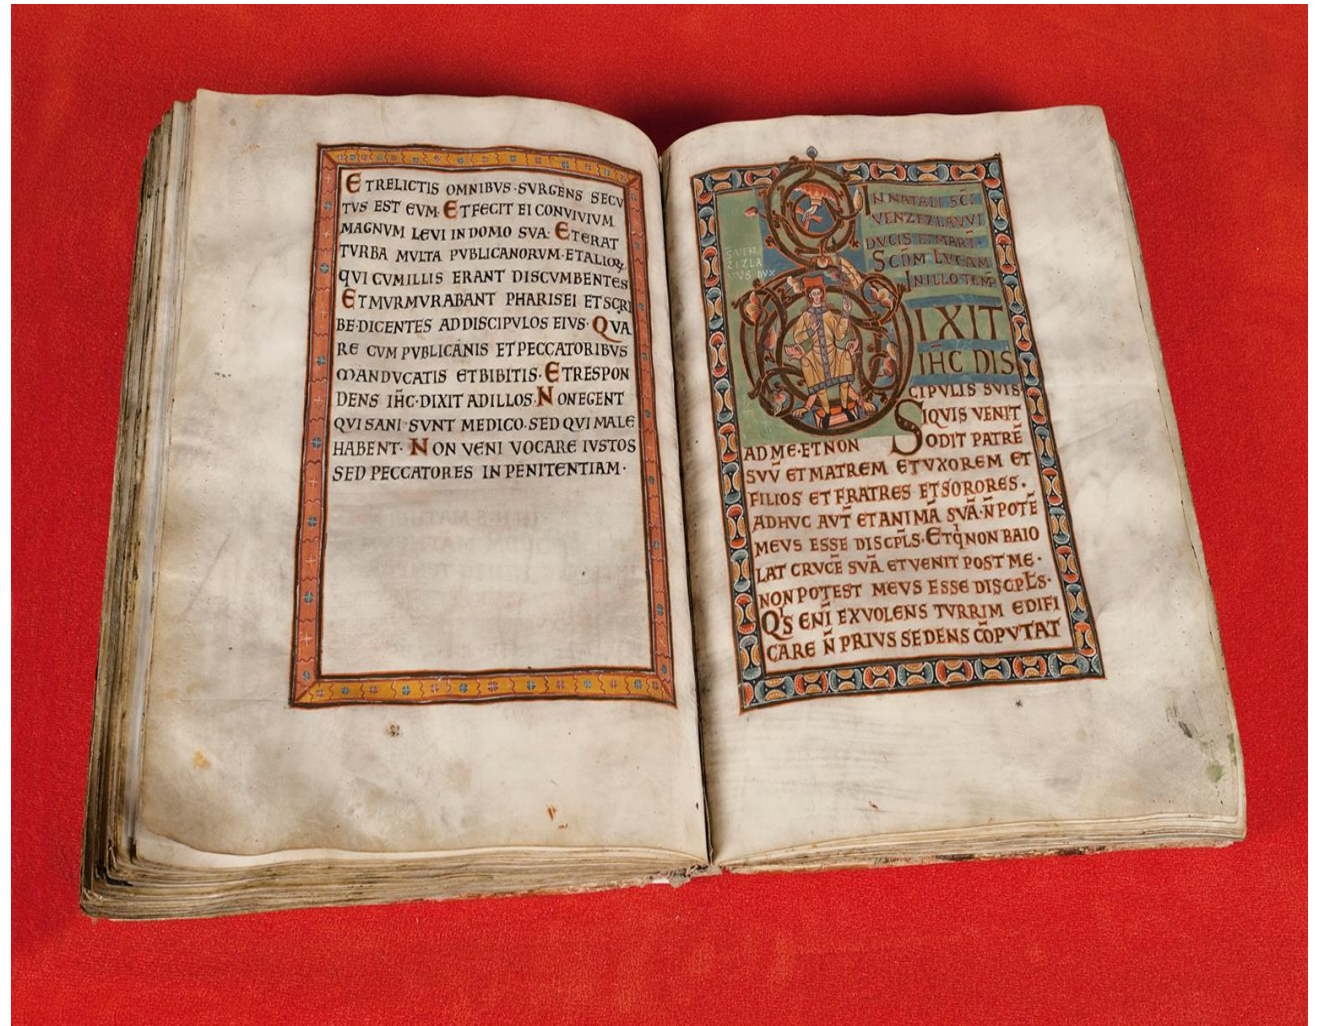 ET RELICTIS OMNIBVS·SVRGENS SECV
TVS EST EVM·ET FECIT EI CONVIVIVM
MAGNVM LEVI IN DOMO SVA·ET ERAT
TVRBA MVLTA PVBLICANORVM·ET ALIOꝜ
QVI CVM ILLIS ERANT DISCVMBENTES
ET MVRMVRABANT PHARISEI ET SCRI
BE·DICENTES AD DISCIPVLOS EIVS·QVA
RE CVM PVBLICANIS ET PECCATORIBVS
MANDVCATIS ET BIBITIS·ET RESPON
DENS IH̄C·DIXIT AD ILLOS·NON EGENT
QVI SANI SVNT MEDICO·SED QVI MALE
HABENT·NON VENI VOCARE IVSTOS
SED PECCATORES IN PENITENTIAM·
IN NATALI SC̄I
VENZEZLAVVI
DVCIS ET MART̄·
SCD̄M LVCAM
IN ILLO TEMP̄
S·VEN
ZIZLA
VVS DVX
DIXIT
IH̄C DIS
CIPVLIS SVIS
SIQVIS VENIT
AD ME·ET NON ODIT PATRĒ
SVV̄ ET MATREM ET VXOREM ET
FILIOS ET FRATRES ET SORORES·
ADHVC AVT̄ ET ANIMĀ SVĀ·N̄ POTĒ
MEVS ESSE DISCPL̄S·ET Qͥ NON BAIO
LAT CRVCĒ SVĀ ET VENIT POST ME·
NON POTEST MEVS ESSE DISCPL̄S·
QͥS ENĪ EX VOLENS TVRRIM EDIFI
CARE N̄ PRIVS SEDENS CŌPVTAT